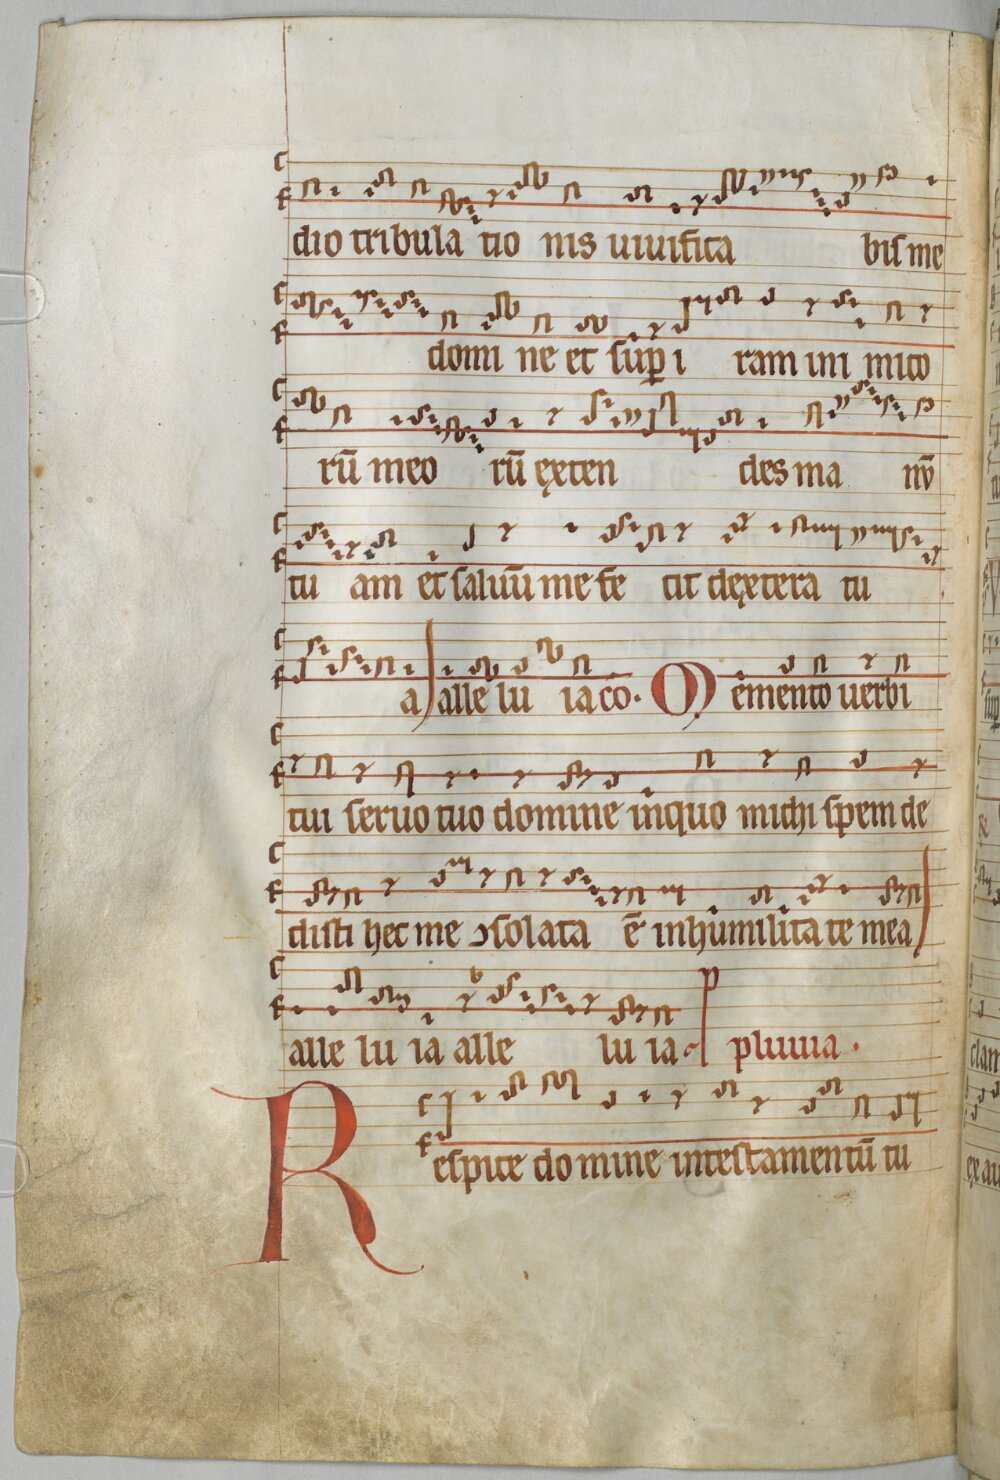 dio tribula tio nis uiuifica bis me
domi ne et sup̲ i ram ini mico
rū meo rū exten des ma nū
tu am et saluū me fe cit dextera tu
a alle lu ia co. Memento uerbi
tui seruo tuo domine inquo michi spem de
disti hec me ɔsolata ē inhumilita te mea
alle lu ia alle lu ia p pluuia.
Respice domine intestamentū tu